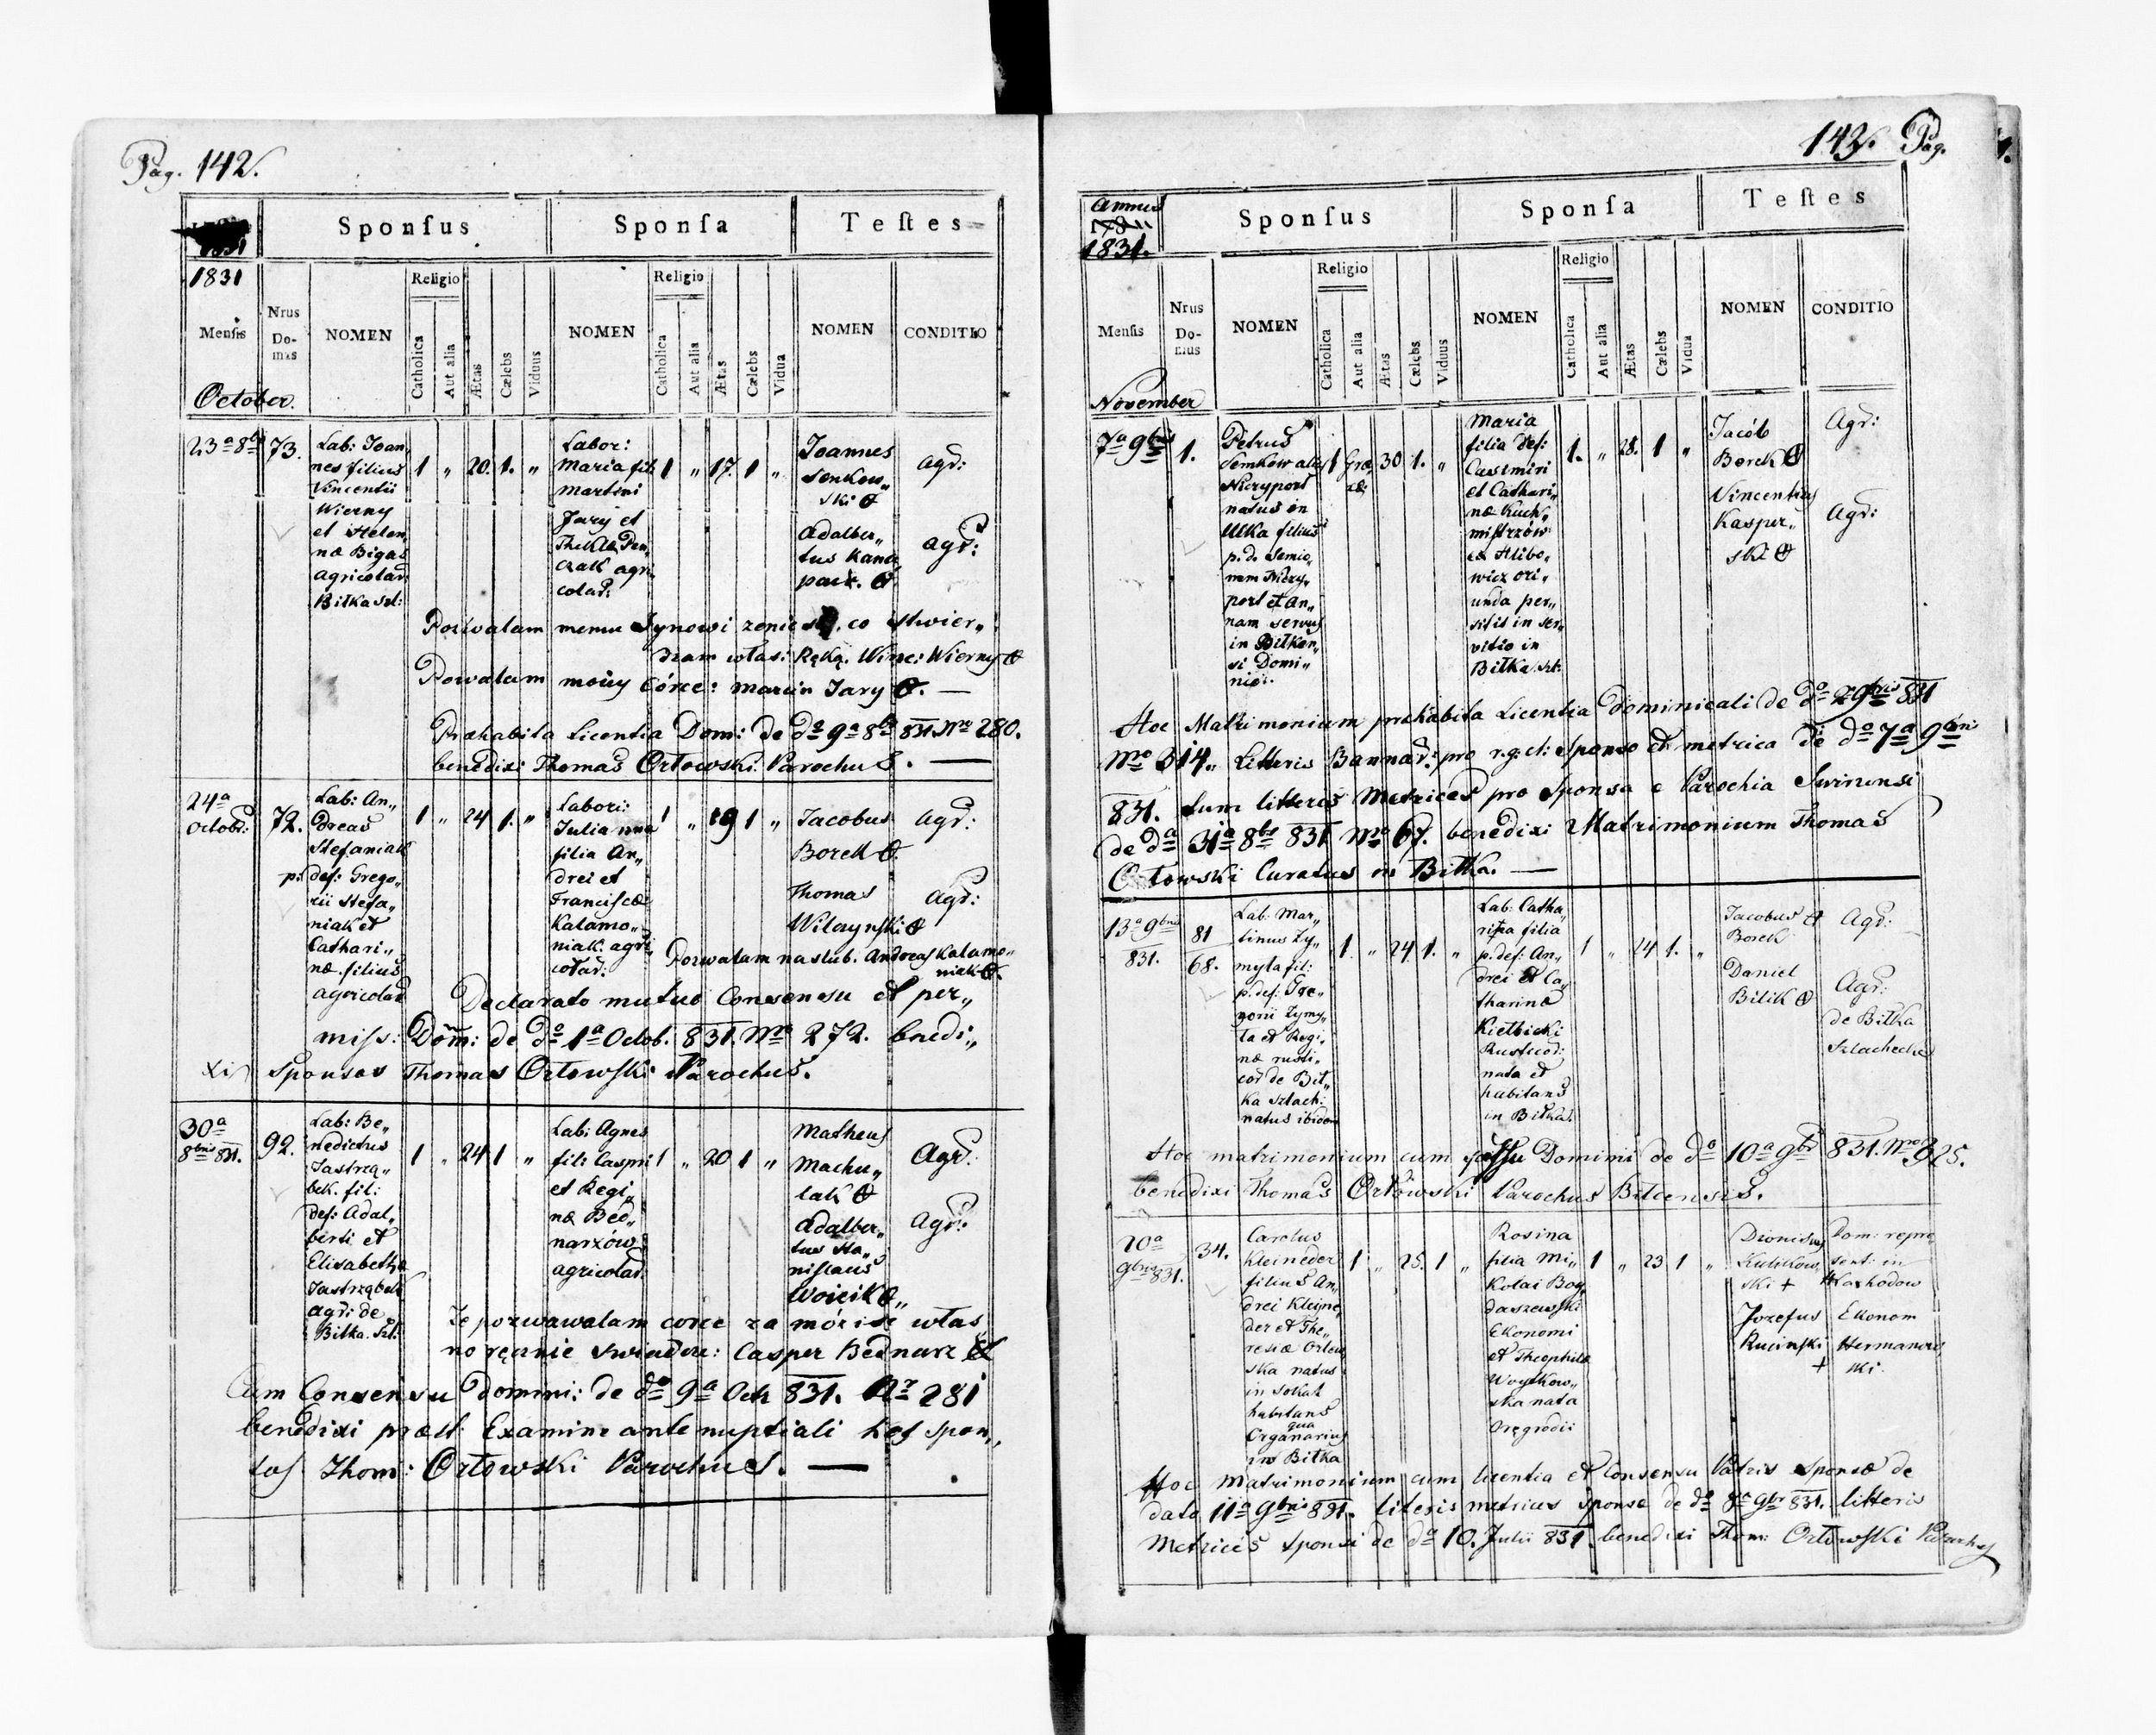 Pag. 142.
1831
Sponſus
Sponſa
Teſtes
1831
Menſis
Nrus
Do-
mus
NOMEN
Religio
Catholica
Aut alia
Ætas
Cælebs
Viduus
NOMEN
Religio
Catholica
Aut alia
Ætas
Cælebs
Vidua
NOMEN
CONDITIO
October.
23a 8b
73.
Lab: Joan„
nes filius
Vincentii
Wierny
et Helen„
næ Bigas
agricolar:
Biłka Szl:
1 „ 20. 1. „
Labor:
Maria fil:
Martini
Jary et
Theklæ Pen„
czak agri„
colar:
1 „ 17. 1 „
Joannes
Senkow„
ski
agr:
Adalber„
tus
agr:
Pozwalam memu Synowi zenić co stwier„
dzam włas: Ręką. Winc: Wierny
Powalam moiy Córce: marcin Jary
Præhabita Licentia Dom: de do 9a 8b 831 Nro 280.
benedixi Thomas Orłowski Parochus.
24a
Octobr:
72.
Lab: An„
dreas
Stefaniak
p: def: Grego„
rii Stefa„
niak et
Cathari„
næ filius
agricolar
1 „ 24 1. „
Labori:
Julianna
filia An„
drei et
Franciscæ
Kalamo„
niak agri„
colar:
1 „ 19 1 „
Jacobus
Borek
agr:
Thomas
Wilczynski
agr:
Pozwalam na slub. Andreas Kalamo„
niak
Declarato mutuo Consensu et per„
miss: Dom: de do 1a Octob. 831. Nro 272. benedi„
xi Sponsos Thomas Orłowski Parochus.
30a
8bris 831.
92.
Lab: Be„
nedictus
Jastrzą„
bek. fil:
def: Adal„
berti et
Elisabethæ
Jastrząbek
agri: de
Biłka. Szl:
1 „ 24 1 „
Lab: Agnes
fili: Caspri
et Regi„
næ Bed„
narzów
agricolar:
1 „ 20 1 „
Matheus
Machu„
lak
Agr:
Adalber„
tus Sta„
nislaus
Woicik
Agr:
Ze pozwawalam corce za móż
no ręcznie swiadcze: Casper Bednarz
Cum Consensu Domini: de do 9a Octr 831. Nr 281
benedixi præst: Examine ante nuptiali hos spon„
sos Thom: Orłowski Parochus.
143. Pag.
Annus
1831.
Sponſus
Sponſa
Teſtes
Menſis
Nrus
Do-
mus
NOMEN
Religio
Catholica
Aut alia
Ætas
Cælebs
Viduus
NOMEN
Religio
Catholica
Aut alia
Ætas
Cælebs
Vidua
NOMEN
CONDITIO
November
7a 9bris
1.
Petrus
Semkow
Niczyport
natus in
filius
p. d. Semio„
nem Niczy„
port et An„
nam servus
in Biłken„
si Domi„
nio:
1 Græ„ 30 1. „
Maria
filia def:
Casimiri
et Cathari„
næ Kuch„
mistrzów
ex Hlibo„
wicz ori„
unda per„
sistit in ser„
vitio in
Biłka Szl:
1. „ 28. 1 „
Jacób
Borek
Agr:
Vincentius
Kasper„
ski
Agr:
Hoc Matrimonium præhabita Licentia Dominicali de do 831
Nro 314„ Litteris Bannar: pro r. g. cl: Sponso et metrica de do 7a 9bris
831. tum litteris Metrices pro Sponsa e Parochia
de da 31a 8br 831 Nro 67. benedixi Matrimonium Thomas
Orłowski Curatus in Biłka.
13a 9bris
831.
81
68.
Lab: Mar„
tinus Zy„
myta fil:
p. def: Gre„
gorii Zymy„
ta et Regi„
næ rusti„
cor de Bił„
ka Szlach:
natus ibidem
1. „ 24 1. „
Lab: Catha„
rina filia
p. def: An„
drei et Ca„
tharinæ
Kiełbicki
Rusticor:
nata et
habitans
in Biłka.
1 „ 24 1. „
Jacobus
Borek
Agr:
Daniel
Bilik
Agr:
de Biłka
Szlachecka
Hoc matrimonium cum Domini de do 10a 9br 831. Nro 325.
benedixi Thomas Orłowski Parochus Bilcensis.
20a
9bris 831.
34.
Carolus
Kleineder
filius An„
drei Kleyne„
der et The„
resiæ Orłow„
ska natus
in Sokal
habitans
qua
Organarius
in Biłka
1 „ 25. 1 „
Rosina
filia Mi„
kolai Bog„
daszewski
Ekonomi
et Theophila
Woytkow„
ska nata
1 „ 23 1 „
Dionisius
Kulikow„
ski +
Dom: repre
sent: in
Jozefus
Rucinski
+
Ekonom
Hermanow
ski.
Hoc matrimonium cum licentia et Consensu Patris Sponsæ de
dato 11a 9bris 831. literis metrices sponsæ de do 8a 9br 831. litteris
Metricēs sponsi de do 10. Julii 831. benedixi Thom: Orłowski Parochus